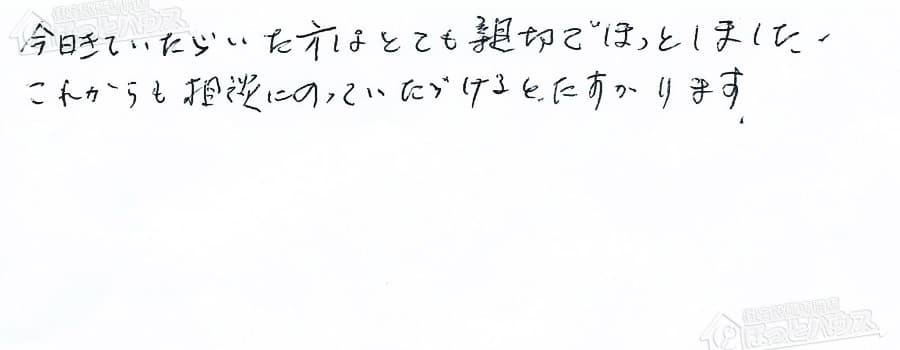 今日きていただいた方はとても親切でほっとしました、
これからも相談にのっていただけると、たすかります
住宅設備専門店
ほっとハウス